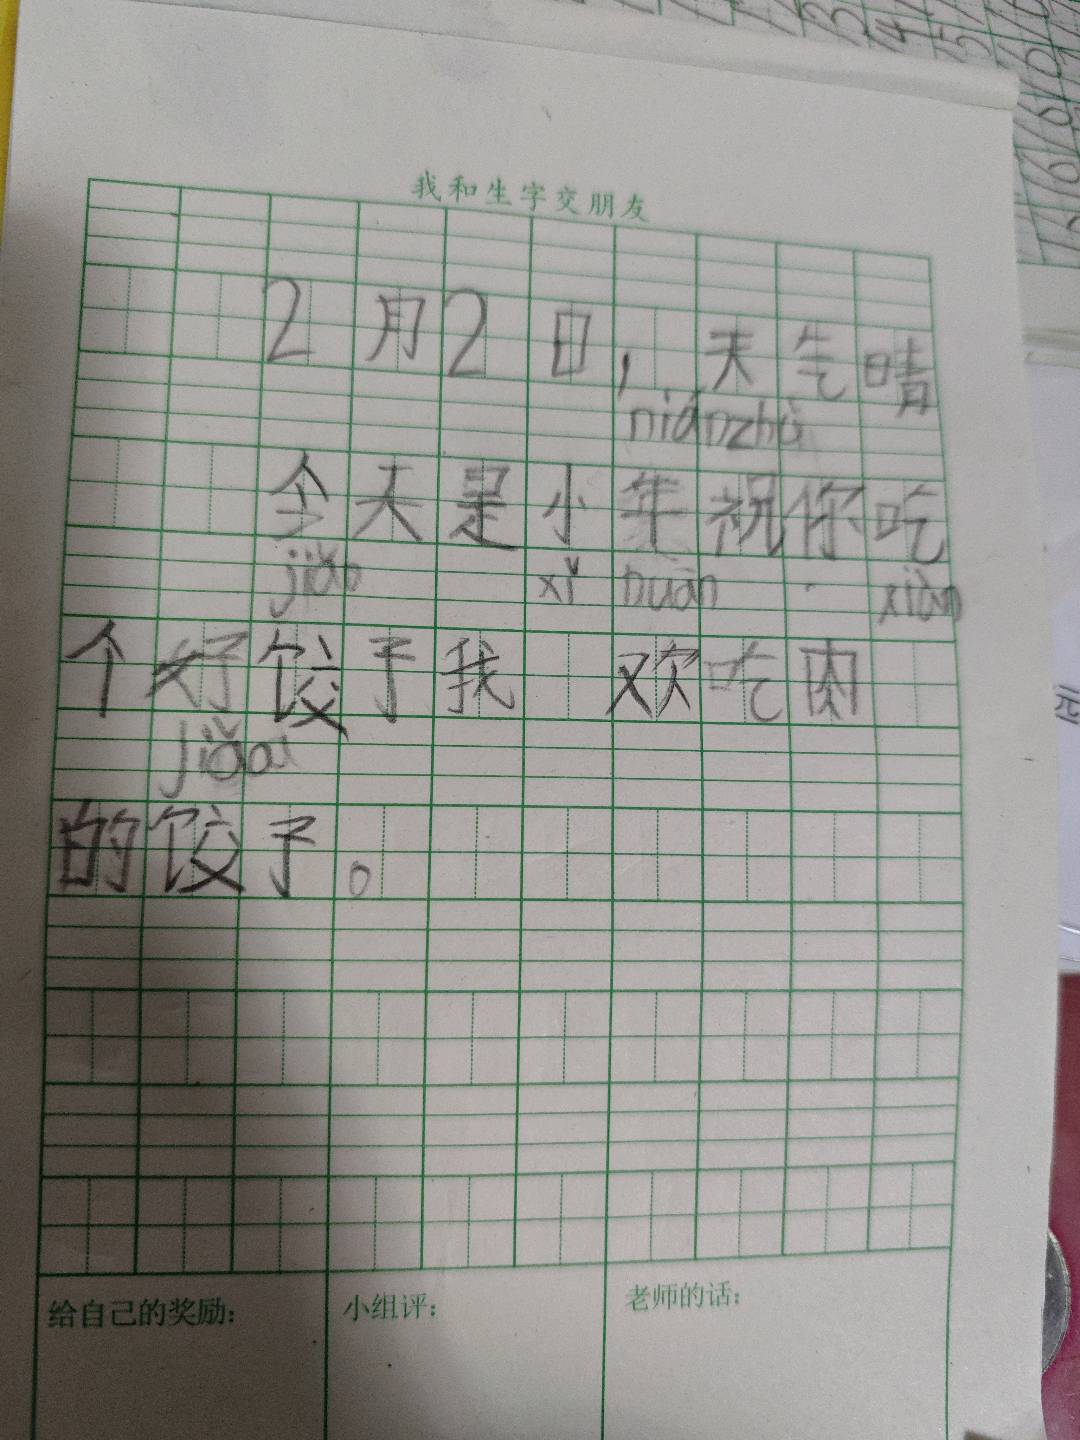 我和生字交朋友
2月2日，天气晴
niánzhù
今天是小年祝你吃
jiǎo xǐ huān xiàn
个好饺子我 欢吃肉
jiǎo
的饺子。
给自己的奖励： 小组评： 老师的话：